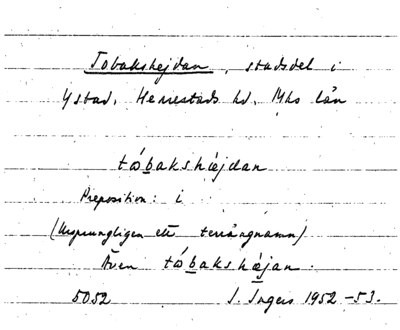 Tobakshejdan, stadsdel i
Ystad, Herrestads hd, Mhs län
tóbakshæjdan
Preposition: i
(Ursprungligen ett terrängnamn)
Även tóbakshæjan.
5052 I. Ingers 1952-53.